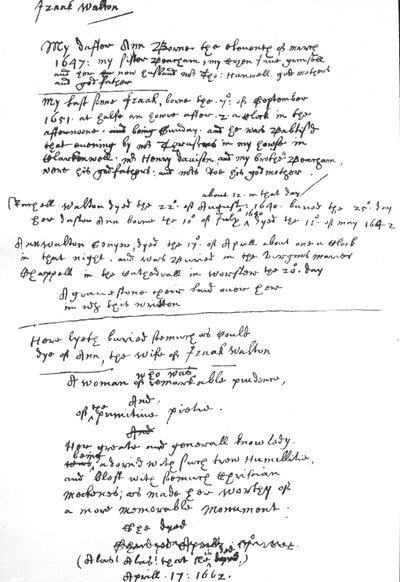 Izaak Walton
My dafter Ann Borne the eleventh of march
1647: my sister Beacham, my Cozen Jane Grinsell
and her now husband mr Tho: Hanwell. god mothers
and god father
My last sonne Izaak, borne the 7º: of September
1651. at halfe an howre after. 2 a clock in the
afternoone. and being Sunday. and he was Baptis'd
that evening by mr Thruscros in my house in
Clarkenwell. mr Henry Davison and my brother Beacham,
were his godfathers. and mrs Roe his god mother.
about 12. in that day
Rachell Walton dyed the 22º. of August: 1640. buried the 25º. day
her dafter Ann borne the 10º of July 1640 dyed the 11º. of may 1642
Ann Walton Conyes, dyed the 17º. of Aprill about one a clock
in that night. and was Buried in the Virgins maries
Chappell in the Cathedrall in Worster the 20º. day
A gravestone their laid over her
in wh this written
Here lyeth buried soemuch as could
dye of Ann, the wife of Izaak Walton
who was
A woman of remarkable prudence,
And,
of the primitive pietie.
And
Her greate and generall knowledg.
being
was, adorn'd with such trew Humillitie,
and blest with soemuch Christian
meekenes; as made her worthy of
a more memorable monument.
She dyed
(Alas! Alas! that she is ded.)
Aprill. 17: 1662.